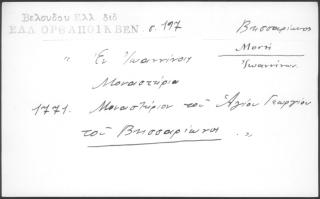 Βελουδου Ελλ διδ
ΕΛΛ ΟΡΘ ΑΠΟΙΚ ΒΕΝ. σ. 197
Βησσαρίωνος
Μονή
Ἰωαννίνων
" Ἐν Ἰωαννίνοις
Μοναστήρια
1771. Μοναστήριον τοῦ Ἁγίου Γεωργίου
τοῦ Βησσαρίωνος . "